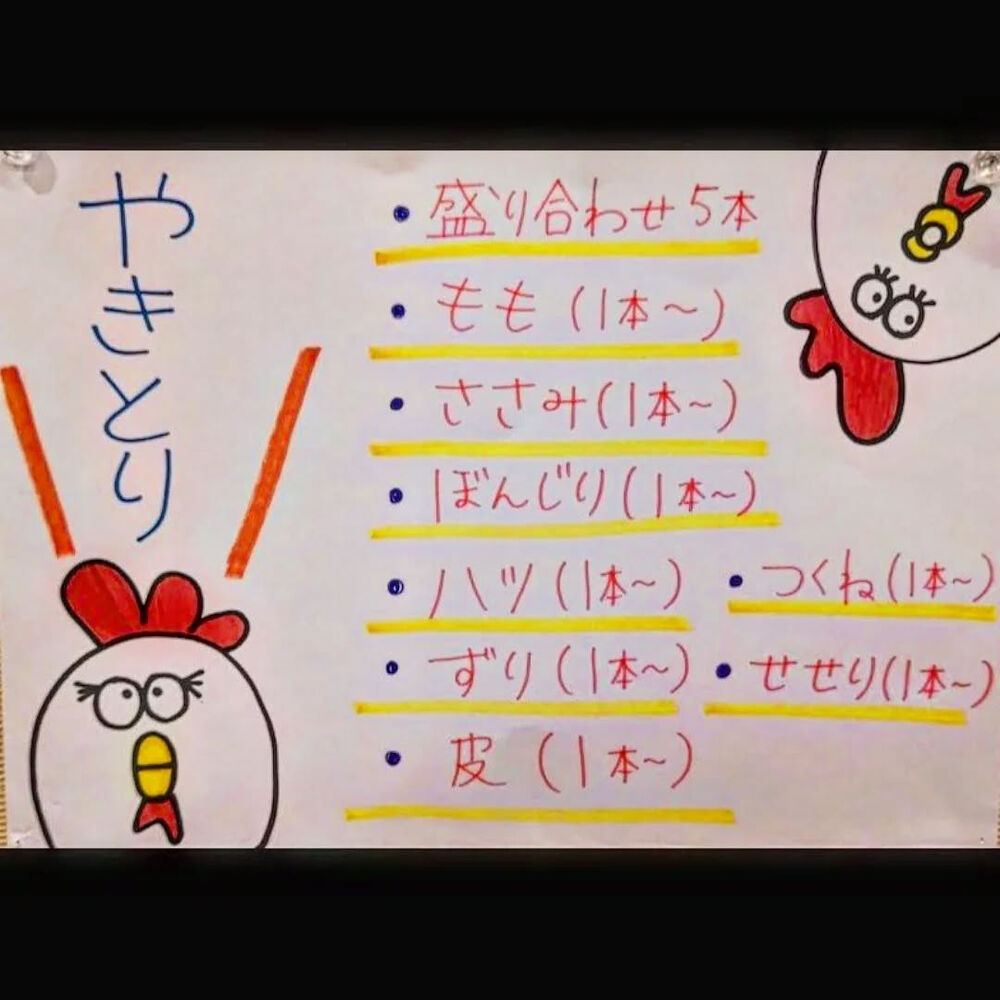 やきとり
・盛り合わせ5本
・もも(1本〜)
・ささみ(1本〜)
・ぼんじり(1本〜)
・ハツ(1本〜)
・つくね(1本〜)
・ずり(1本〜)
・せせり(1本〜)
・皮(1本〜)